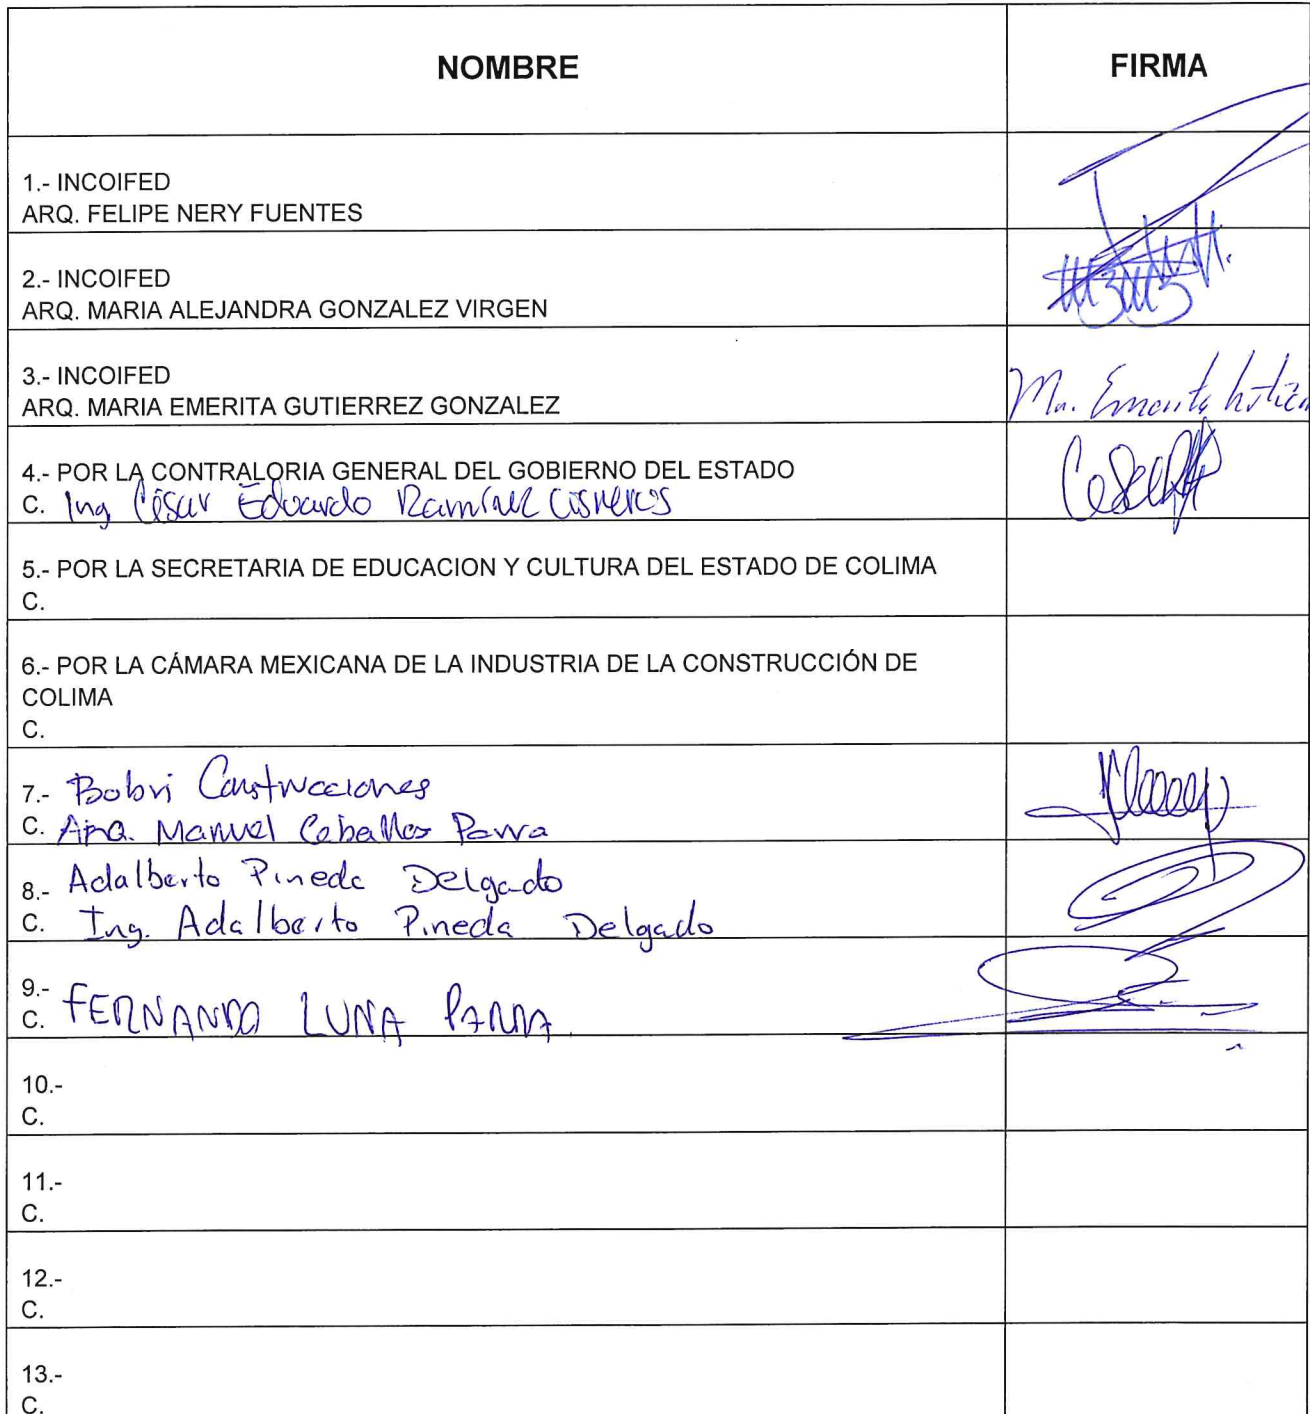 NOMBRE
FIRMA
1.- INCOIFED
ARQ. FELIPE NERY FUENTES
2.- INCOIFED
ARQ. MARIA ALEJANDRA GONZALEZ VIRGEN
3.- INCOIFED
ARQ. MARIA EMERITA GUTIERREZ GONZALEZ
Ma. Emerita
4.- POR LA CONTRALORIA GENERAL DEL GOBIERNO DEL ESTADO
C. Ing César Eduardo Ramírez Cisneros
5.- POR LA SECRETARIA DE EDUCACION Y CULTURA DEL ESTADO DE COLIMA
C.
6.- POR LA CÁMARA MEXICANA DE LA INDUSTRIA DE LA CONSTRUCCIÓN DE
COLIMA
C.
7.- Bobri Construcciones
C. ARQ. Manuel Ceballos Parra
8.- Adalberto Pineda Delgado
C. Ing. Adalberto Pineda Delgado
9.-
C. FERNANDO LUNA PARRA
10.-
C.
11.-
C.
12.-
C.
13.-
C.